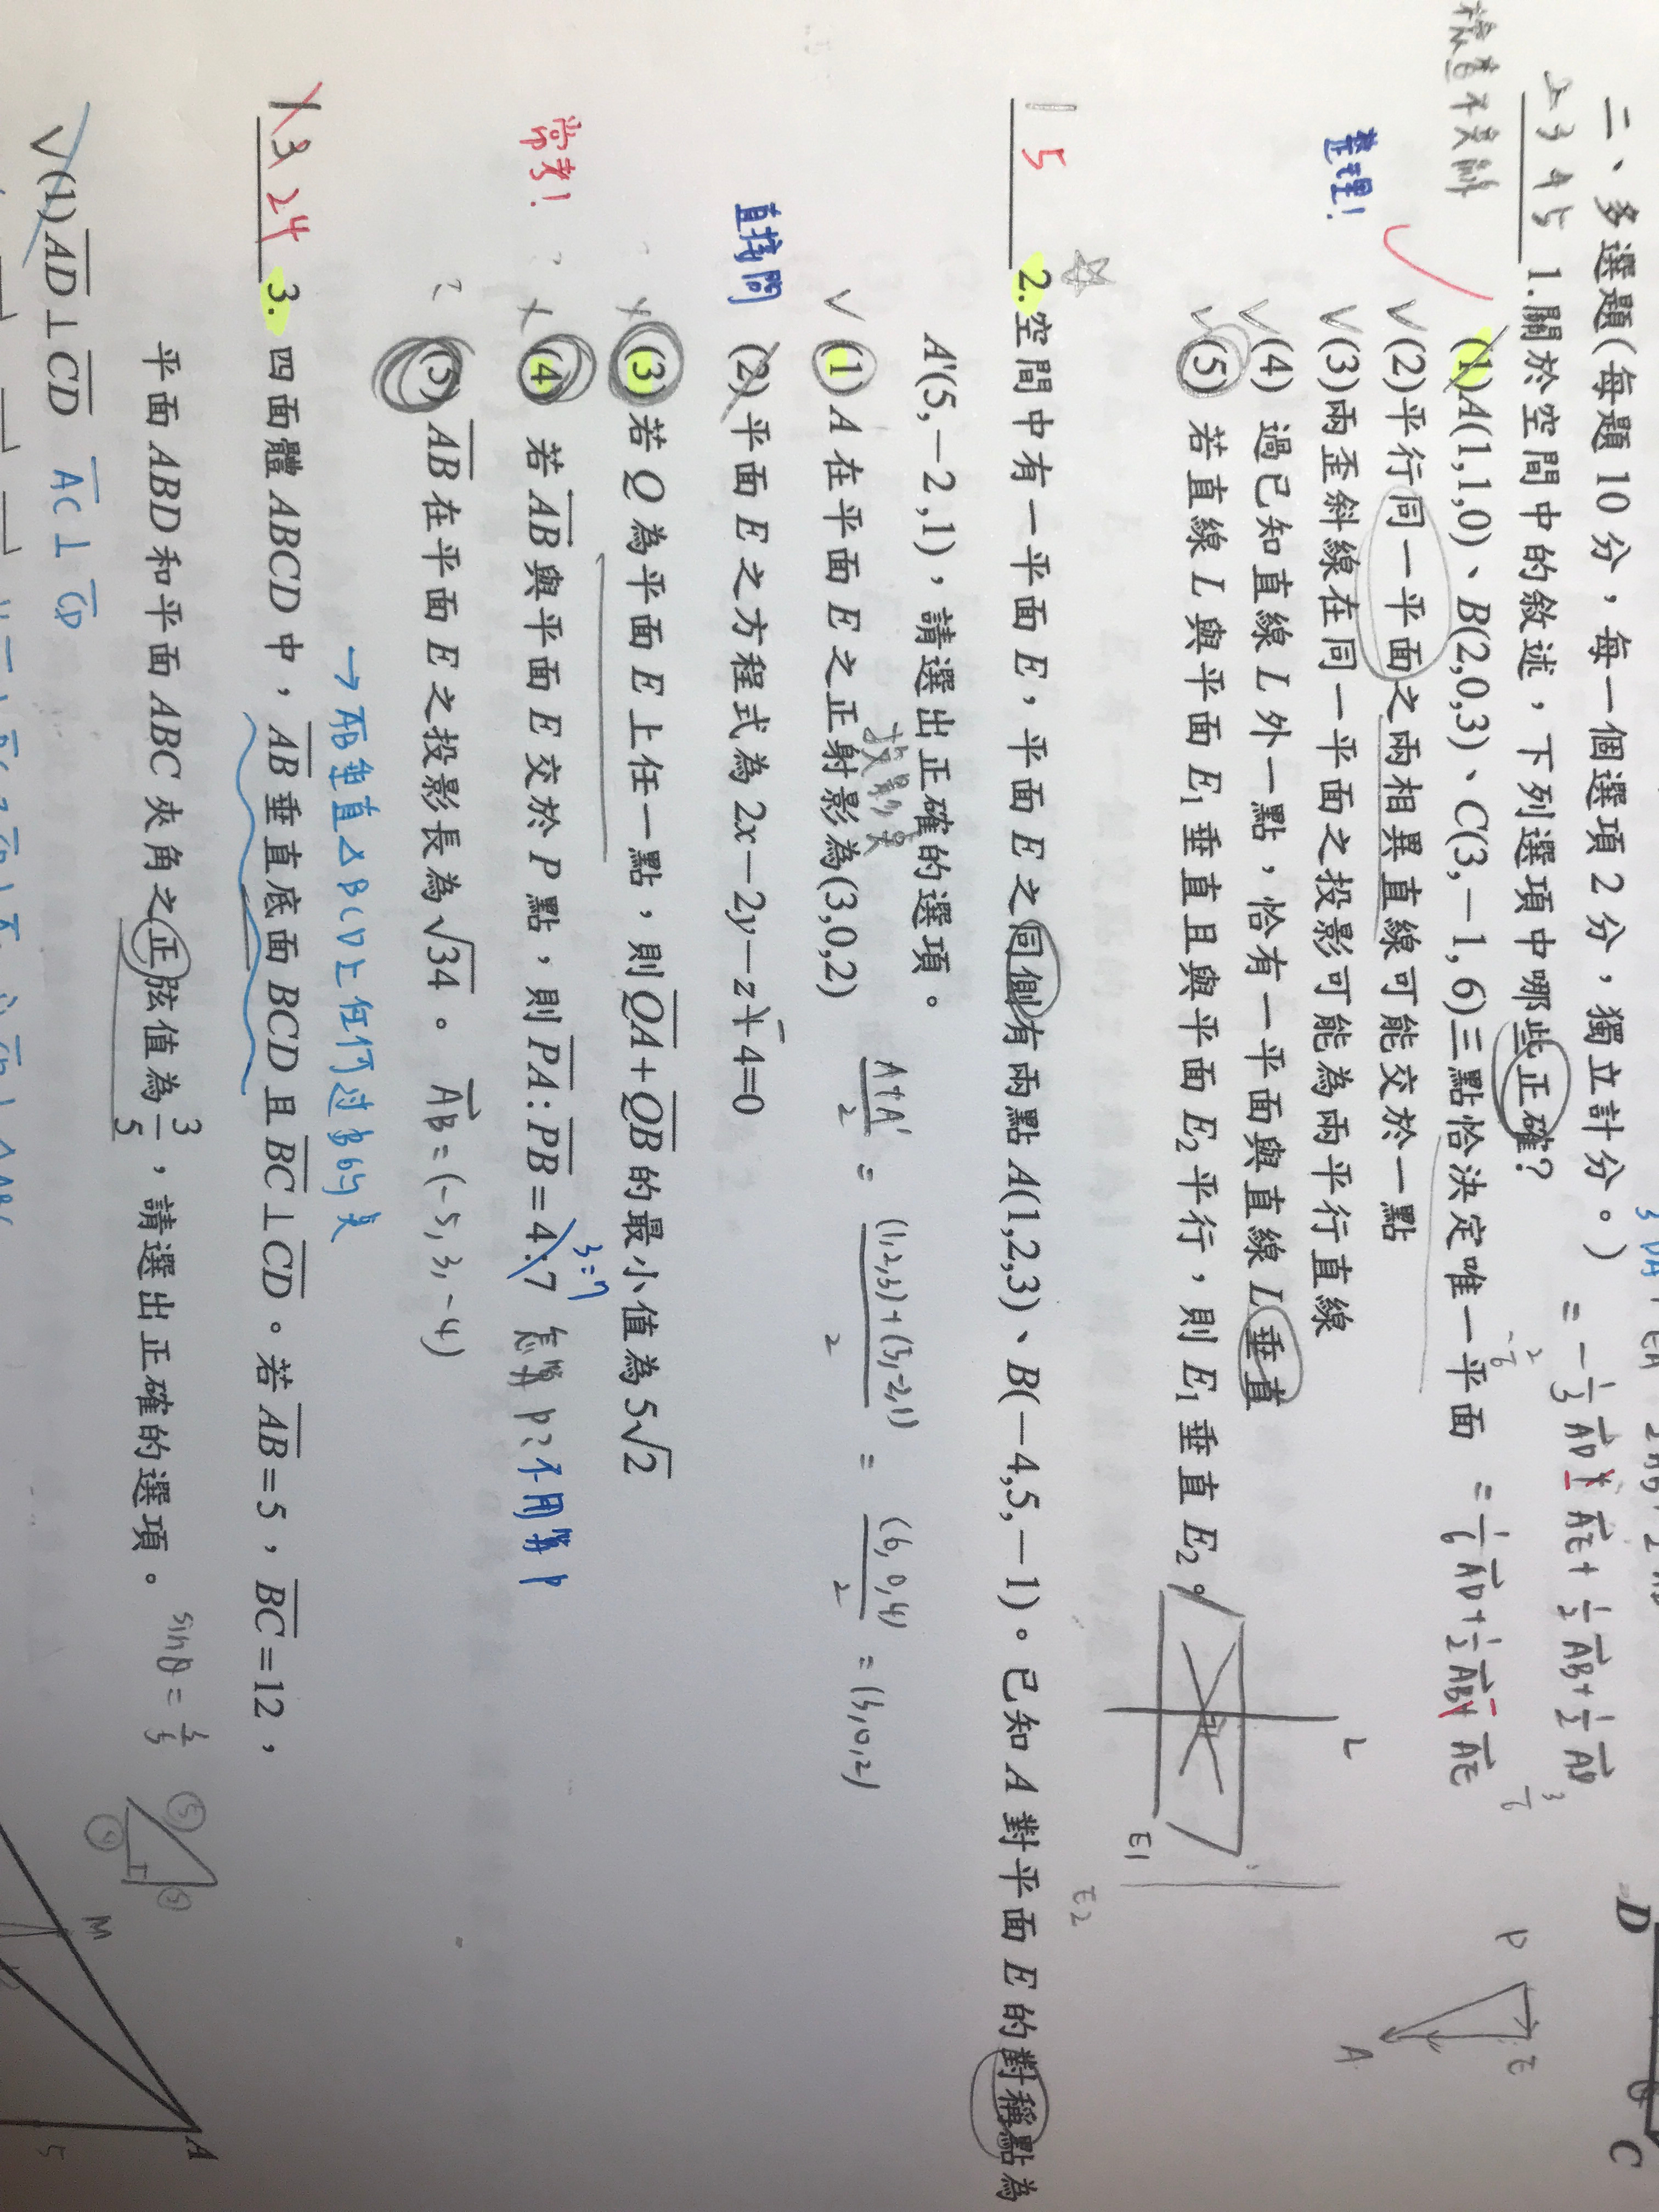 二、多選題(每題 10 分，每一個選項 2 分，獨立計分。)
= -1/3 AD + AE + 1/2 AB + 1/2 AD
2 3 4 5 1.關於空間中的敘述，下列選項中哪些正確?
(1)A(1,1,0)、B(2,0,3)、C(3,-1,6)三點恰決定唯一平面
= 1/6 AD + 1/2 AB + AE
✓(2)平行同一平面之兩相異直線可能交於一點
整理!
✓(3)兩歪斜線在同一平面之投影可能為兩平行直線
✓(4) 過已知直線 L 外一點，恰有一平面與直線 L 垂直
✓(5) 若直線 L 與平面 E₁ 垂直且與平面 E₂ 平行，則 E₁ 垂直 E₂。
L
E1
E2
P
E
A
D
C
☆
1 5 2.空間中有一平面 E，平面 E 之同側有兩點 A(1,2,3)、B(-4,5,-1)。已知 A 對平面 E 的對稱點為
A'(5,-2,1)，請選出正確的選項。
投影點
✓(1) A 在平面 E 之正射影為(3,0,2)
A+A'/2 = (1,2,3)+(5,-2,1)/2 = (6,0,4)/2 = (3,0,2)
直接問
(2)平面 E 之方程式為 2x-2y-z+4=0
-
(3) 若 Q 為平面 E 上任一點，則 QA+QB 的最小值為 5√2
常考!
(4) 若 AB 與平面 E 交於 P 點，則 PA:PB=4:7
3=7
怎算 P? 不用算 P
? (5) AB 在平面 E 之投影長為 √34。
AB = (-5, 3, -4)
→ AB 垂直△BCD上任何过B的线
3 24 3. 四面體 ABCD 中，AB 垂直底面 BCD 且 BC⊥CD。若 AB=5，BC=12，
平面 ABD 和平面 ABC 夾角之正弦值為 3/5，請選出正確的選項。
sinθ = 3/5
5
4
3
✓(1) AD⊥CD
AC⊥CD
M
A
5